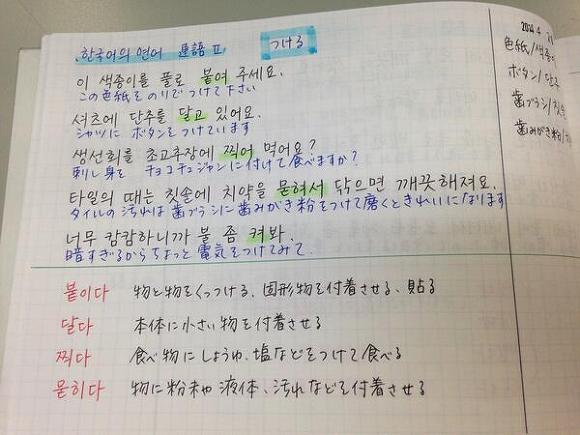 한국어의 연어 連語 Ⅱ つける
이 색종이를 풀로 붙여 주세요.
この色紙をのりでつけて下さい
셔츠에 단추를 달고 있어요.
シャツに ボタンをつけています
생선회를 초고추장에 찍어 먹어요?
刺し身を チョコチュジャンに付けて食べますか?
타일의 때는 칫솔에 치약을 묻혀서 닦으면 깨끗해져요.
タイルの汚れは歯ブラシに歯みがき粉をつけて磨くときれいになります
너무 캄캄하니까 불 좀 켜봐.
暗すぎるからちょっと電気をつけてみて.
붙이다 物と物をくっつける、固形物を付着させる、貼る
달다 本体に小さい物を付着させる
찍다 食べ物にしょうゆ、塩などをつけて食べる
묻히다 物に粉末や液体、汚れなどを付着させる
色紙/색종이
ボタン/단추
歯ブラシ/칫솔
歯みがき粉/